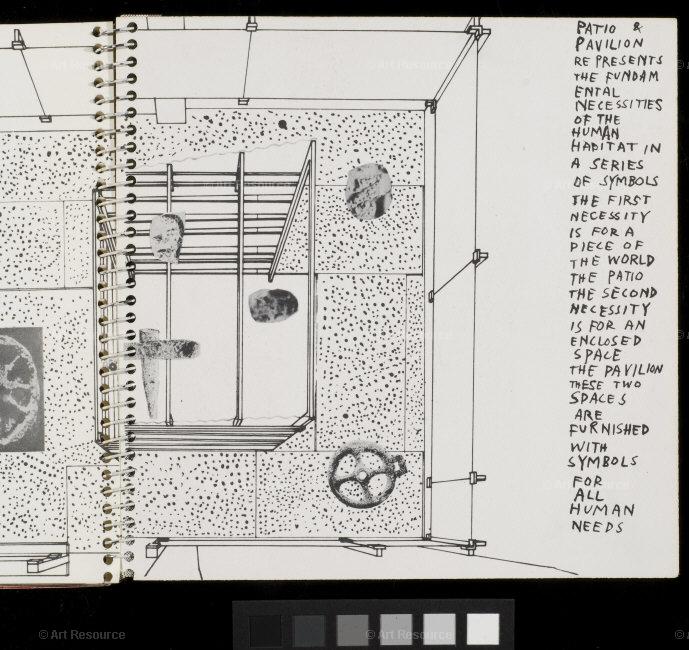 PATIO &
PAVILION
REPRESENTS
THE FUNDAM
ENTAL
NECESSITIES
OF THE
HUMAN
HABITAT IN
A SERIES
OF SYMBOLS
THE FIRST
NECESSITY
IS FOR A
PIECE OF
THE WORLD
THE PATIO
THE SECOND
NECESSITY
IS FOR AN
ENCLOSED
SPACE
THE PAVILION
THESE TWO
SPACES
ARE
FURNISHED
WITH
SYMBOLS
FOR
ALL
HUMAN
NEEDS
© Art Resource © Art Resource © Art Resource